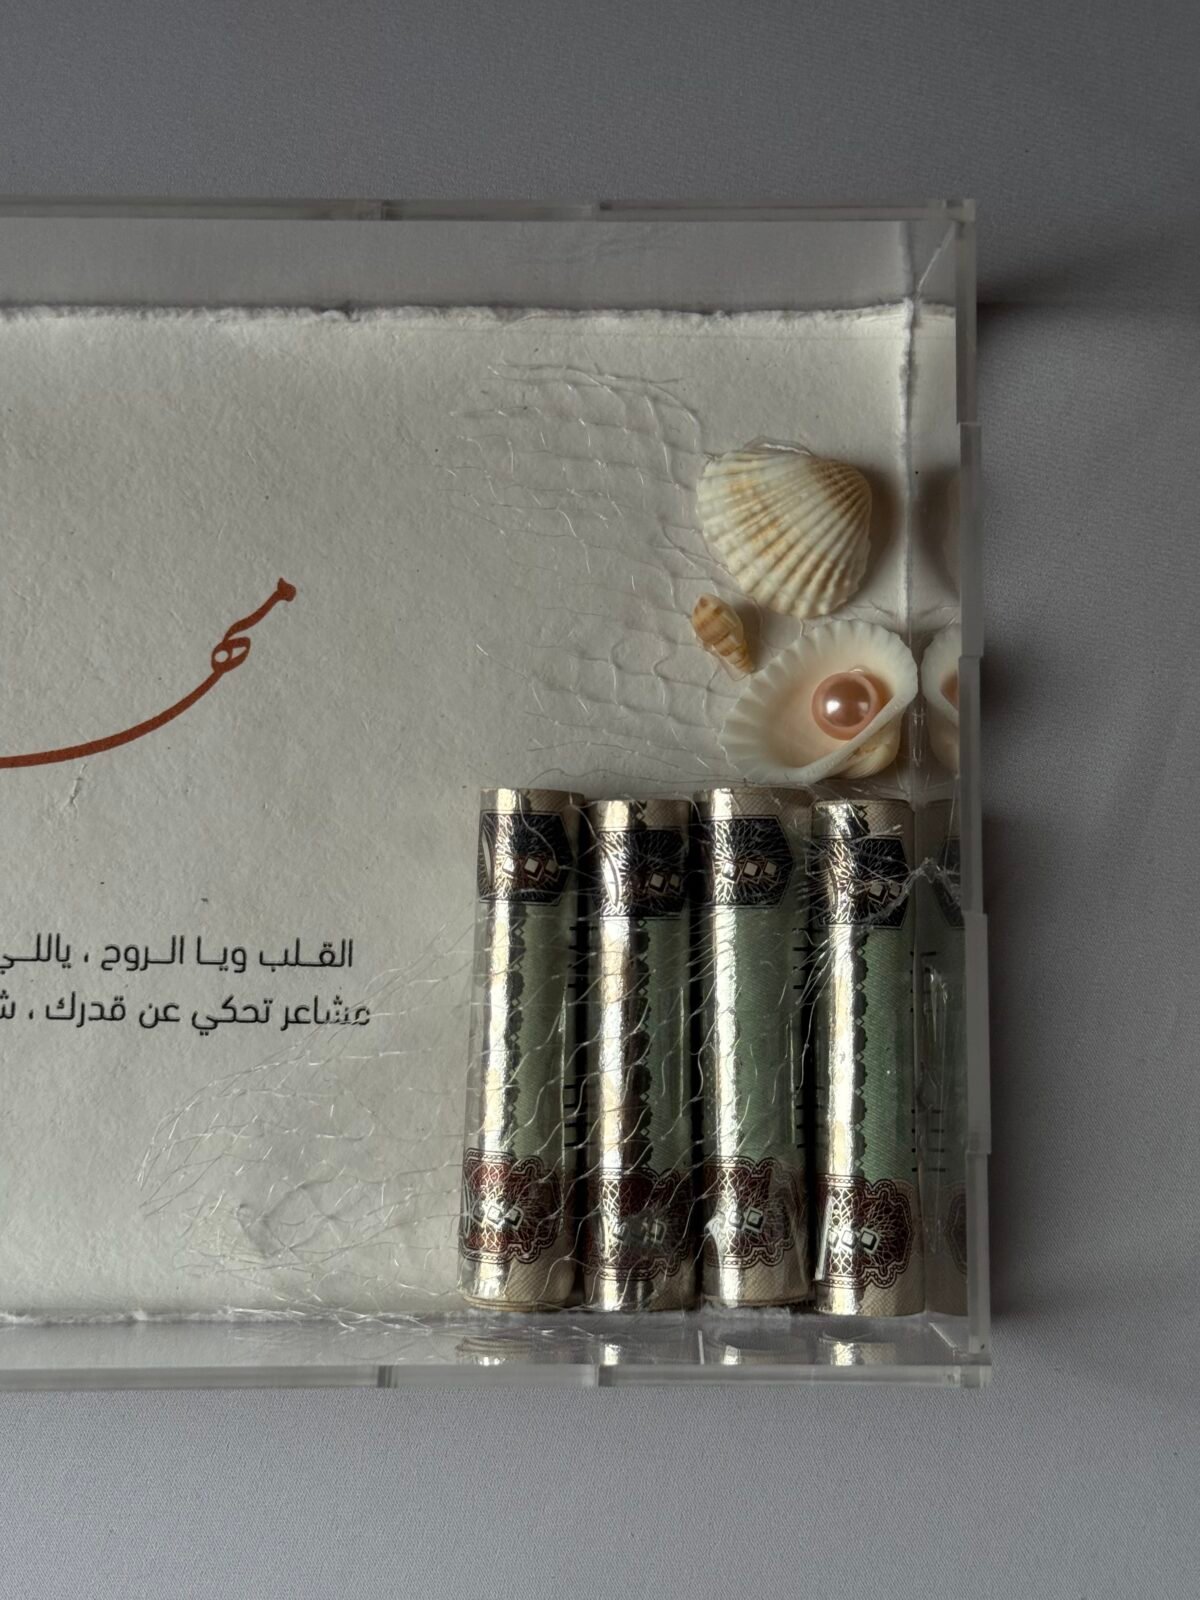 القلب ويا الروح ، ياللي
مشاعر تحكي عن قدرك ،